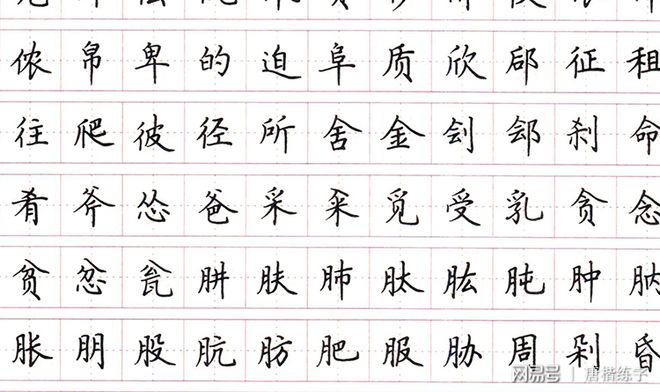 侬帛卑的迫阜质欣郈征
往爬彼径所舍金刽郐刹命
肴斧怂爸采籴觅受乳贪念
贫忿瓮肼肤肺肽肱肫肿肭
胀朋股肮肪肥服胁周剁昏
网易号 | 唐楷练字